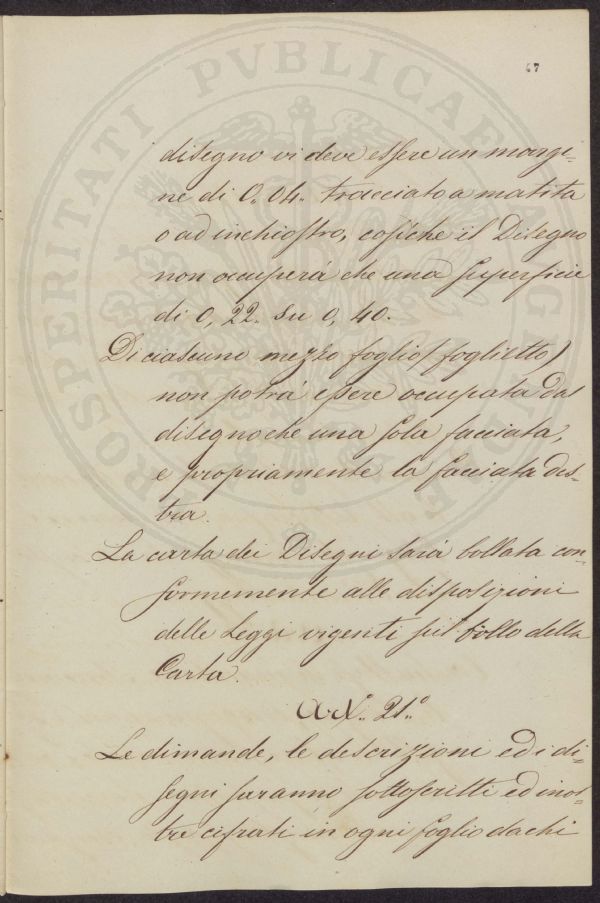 47
disegno vi deve essere un margi=
ne di 0,,04,, tracciato a matita
o ad inchiostro, cosiche il Disegno
non occuperá che una superficie
di 0, 22. Su 0, 40.
Di ciascuno mezzo foglio (foglietto)
non potrá essere occupata dal
disegno che una sola facciata,
e propriamente la facciata des=
tra.
La carta dei Disegni sará bollata con=
formemente alle disposizioni
delle Leggi vigenti sul bollo della
Carta.
Art.. 21.º
Le dimande, le descrizioni ed i di=
segni saranno sottoscritti ed inol=
tre cifrati in ogni foglio da chi
PROSPERITATI PVBLICAE AVGENDAE